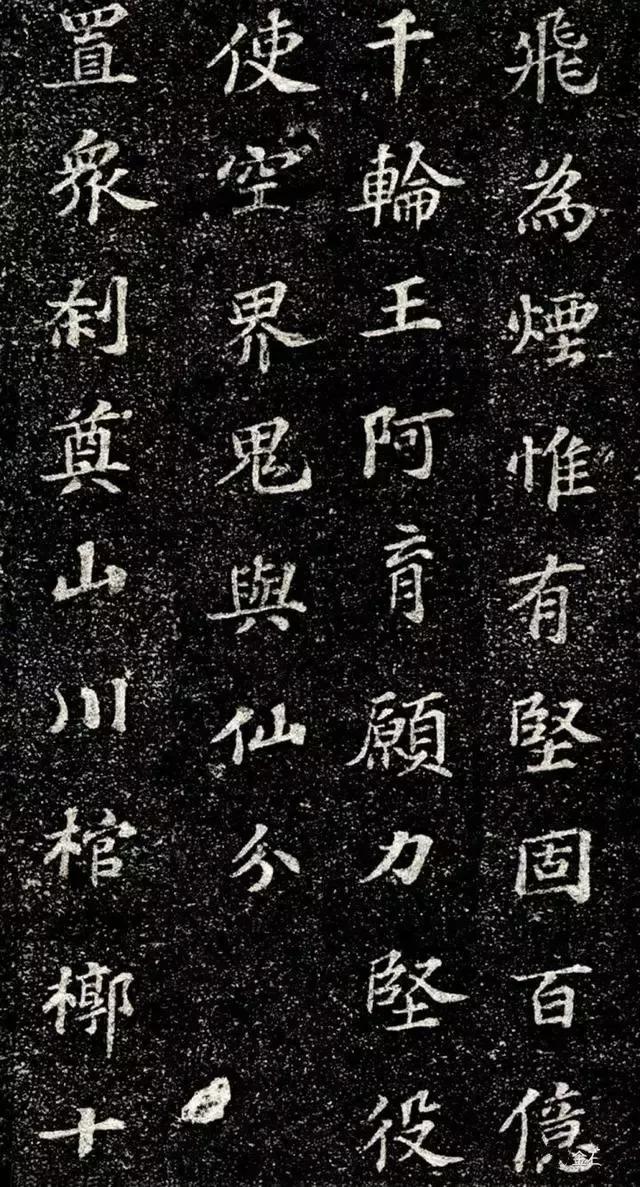 飛為煙惟有堅固百億
千輪王阿育願力堅役
使空界鬼與仙分
置眾剎奠山川棺槨十